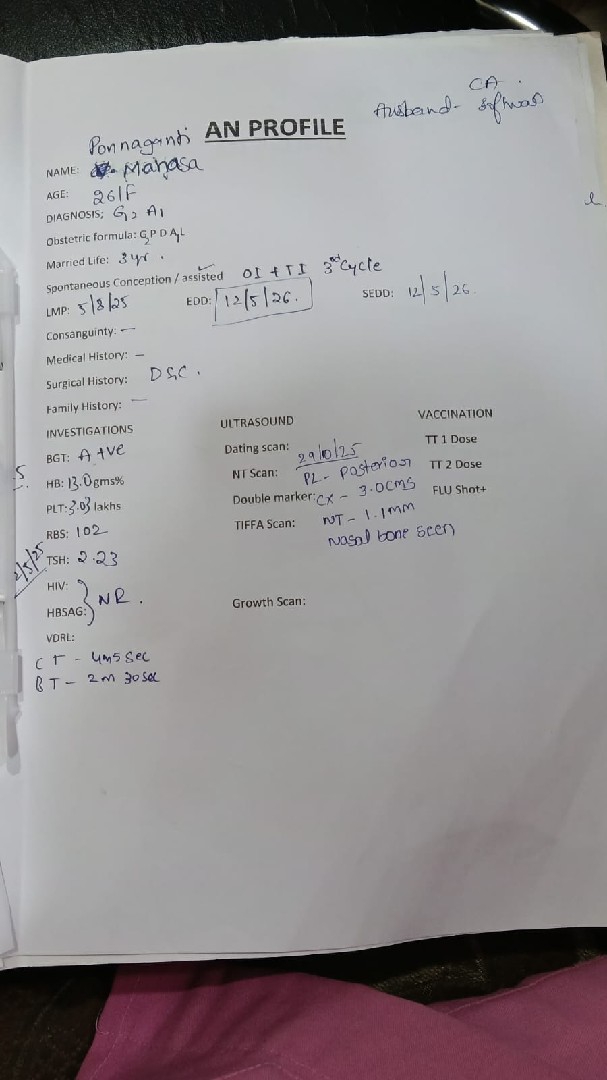 CA.
Husband- Software
AN PROFILE
Ponnaganti
NAME: Mahasa
AGE: 26/F
DIAGNOSIS; G2 A1
Obstetric formula: G2P0A1L
Married Life: 3yr.
Spontaneous Conception / assisted ✓ OI + TI 3rd Cycle
LMP: 5/8/25 EDD: 12/5/26. SEDD: 12/5/26.
Consanguinty: —
Medical History: —
Surgical History: D&C.
Family History: —
INVESTIGATIONS ULTRASOUND VACCINATION
BGT: A +ve Dating scan: 29/10/25 TT 1 Dose
HB: 13.0 gms% NT Scan: PL- Posterior TT 2 Dose
PLT: 3.03 lakhs Double marker: CX - 3.0cms FLU Shot+
RBS: 102 TIFFA Scan: NT - 1.1mm
Nasal bone seen
TSH: 2.23
HIV:
HBSAG: } NR.
Growth Scan:
VDRL:
CT - 4m5 Sec
BT - 2m 30sec